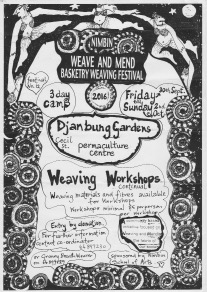 NIMBIN
WEAVE AND MEND
BASKETRY WEAVING FESTIVAL
Festival
No. 12
2016
3 day
camp
Friday 30th Sept.
Sunday 2nd
Oct
Djanbung Gardens
Cecil
St.
permaculture
centre
Weaving Workshops
continual
Weaving materials and fibres available
for workshops
Workshops minimal $ per person
per workshop
Entry by donation
For further information
contact co-ordinator
or Granny Breath Weaver
sponsored by Nimbin
School of Arts